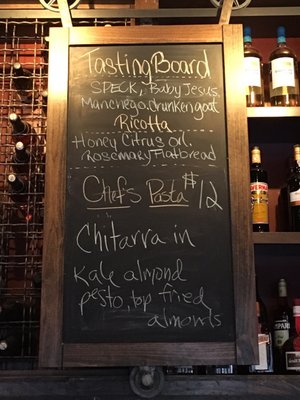 Tasting Board
SPECK, Baby Jesus,
Manchego, drunken goat
Ricotta
Honey Citrus oil.
Rosemary Flatbread
Chef's Pasta $12
Chitarra in
Kale almond
pesto, top fried
almonds